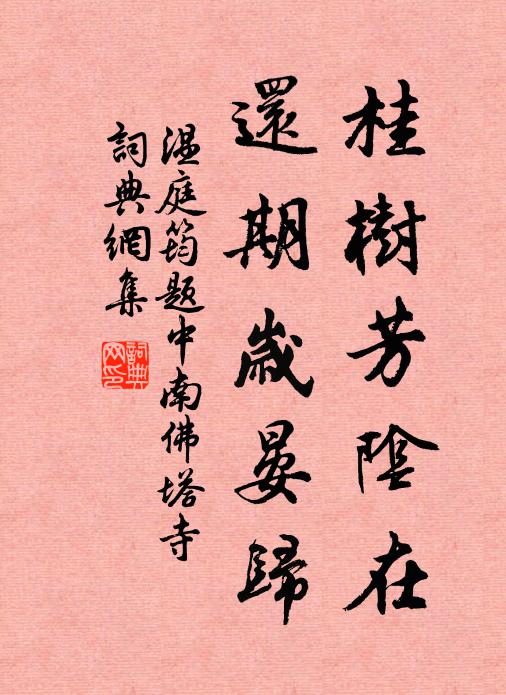 桂樹芳陰在
還期歲晏歸
溫庭筠題中南佛塔寺
詞典網集
詞典网印